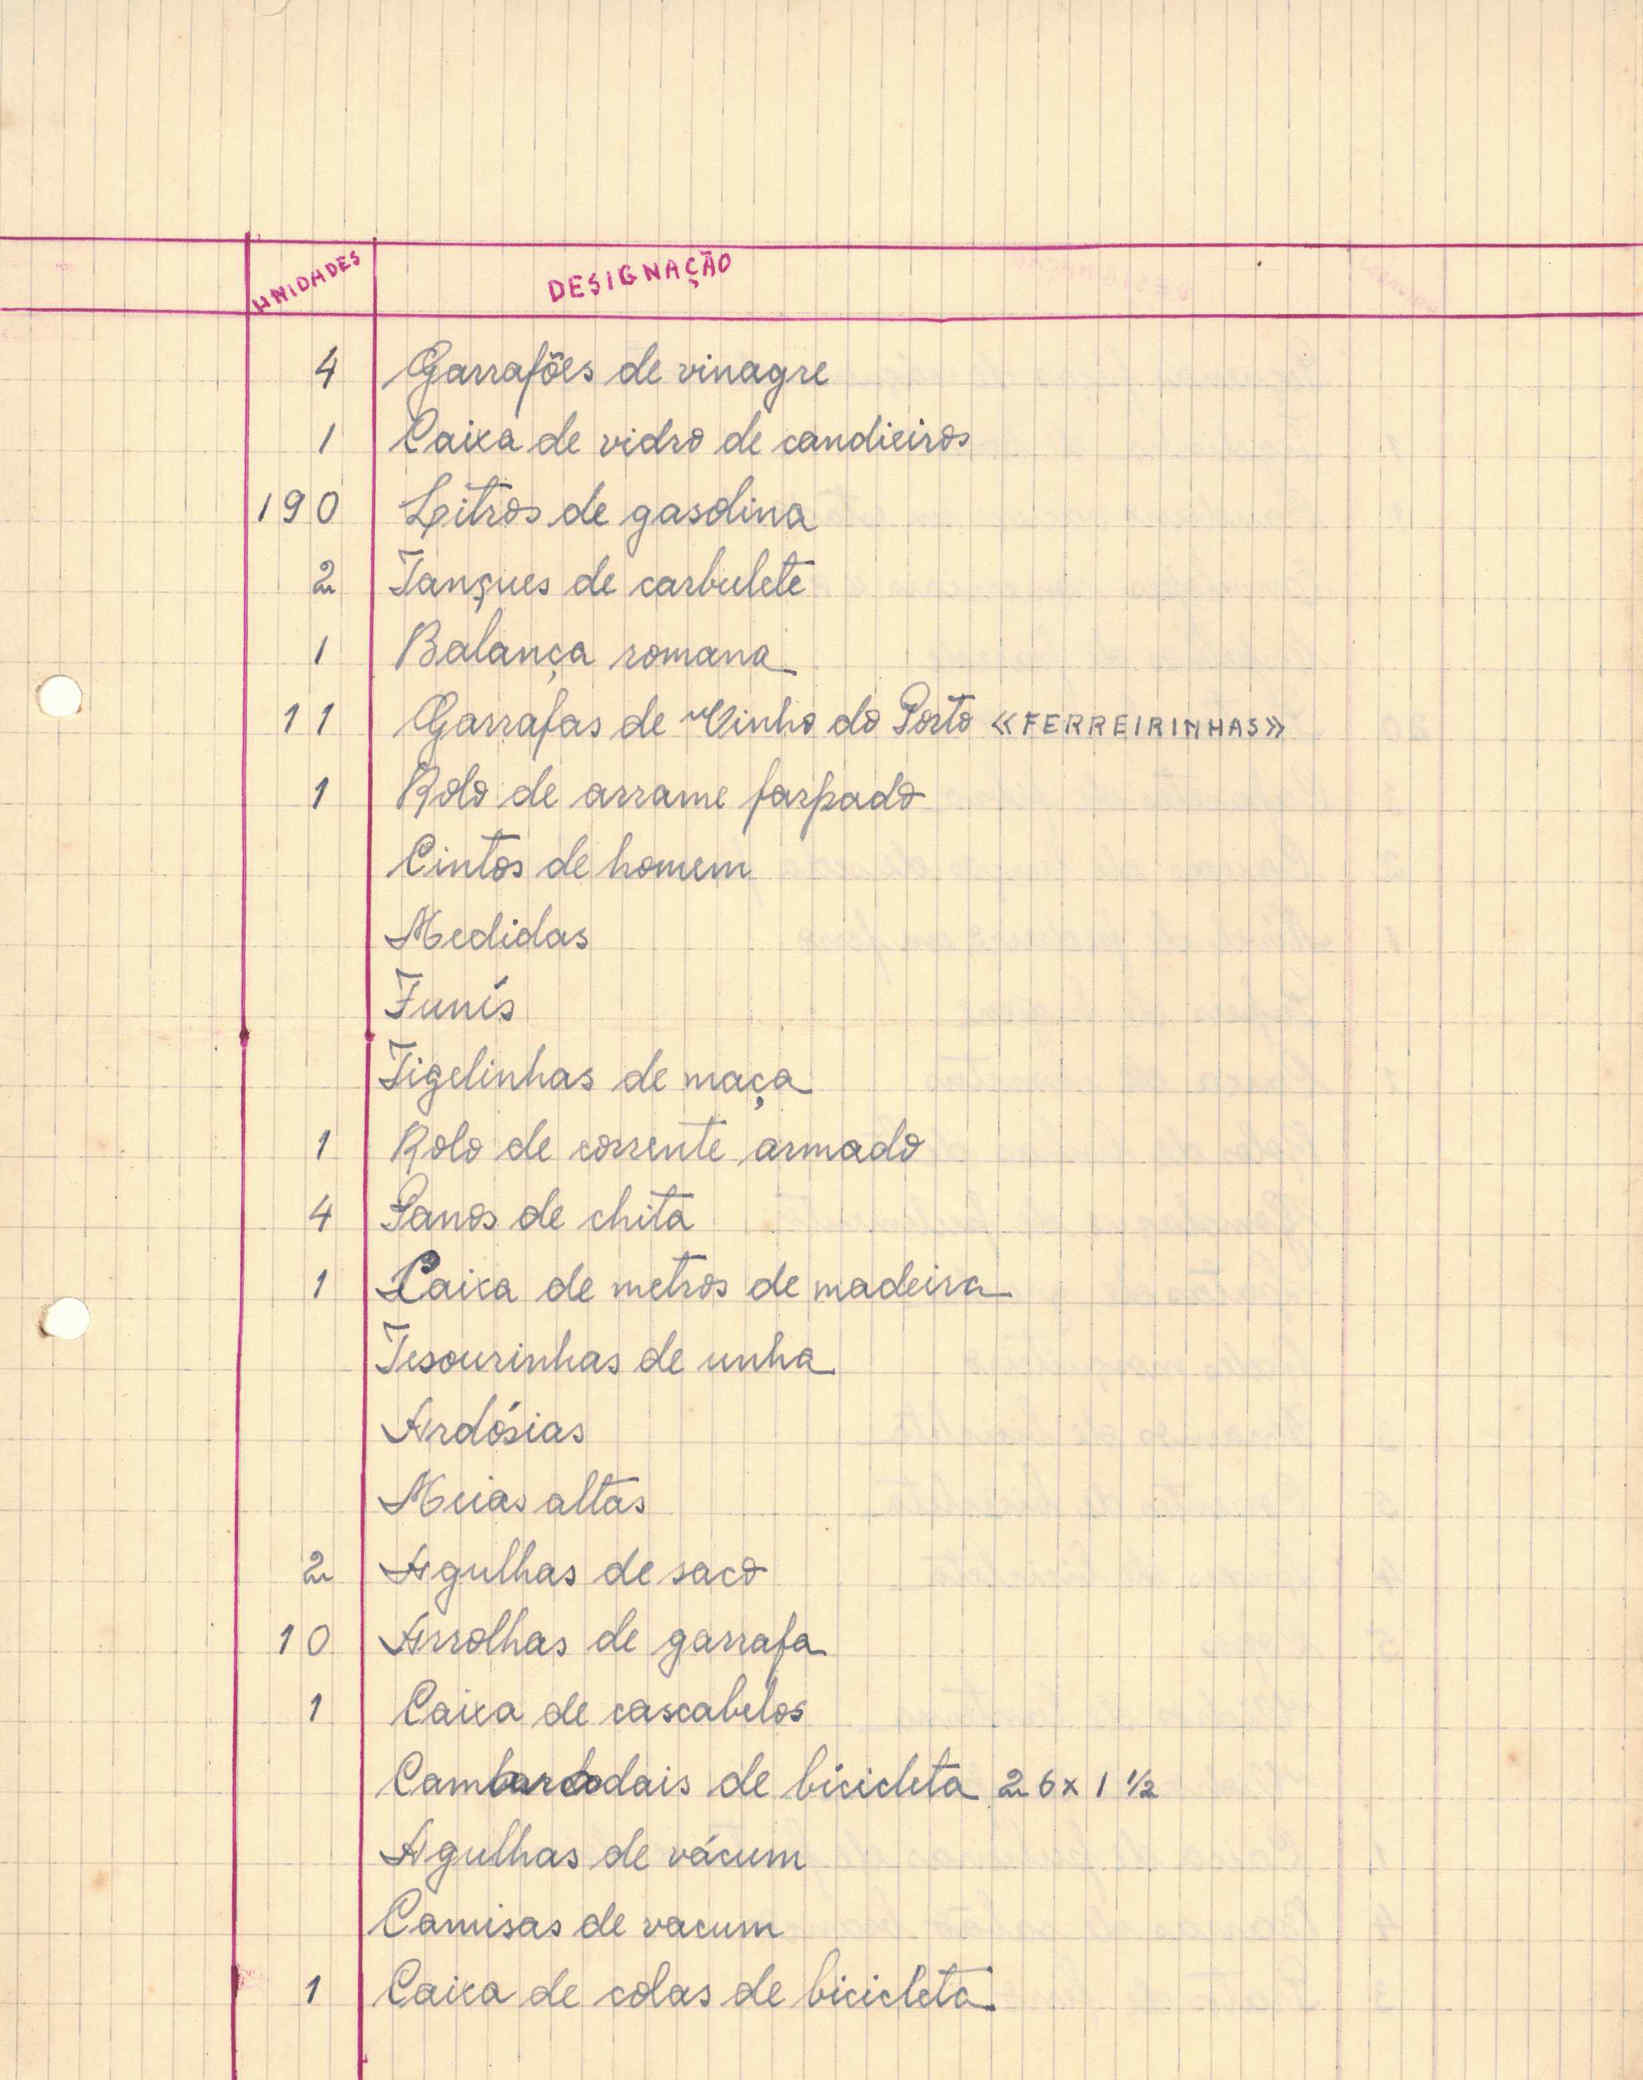 UNIDADES DESIGNAÇÃO
4 Garrafões de vinagre
1 Caixa de vidro de candieiros
190 Litros de gasolina
2 Tanques de carbulete
1 Balança romana
11 Garrafas de Vinho do Porto «FERREIRINHAS»
1 Rolo de arrame farpado
Cintos de homem
Medidas
Funís
Tigelinhas de maça
1 Rolo de corrente armado
4 Panos de chita
1 Caixa de metros de madeira
Tesourinhas de unha
Ardósias
Meias altas
2 Agulhas de saco
10 Arrolhas de garrafa
1 Caixa de cascabelos
de bicicleta 26 x 1 ½
Agulhas de vácum
Camisas de vacum
1 Caixa de colas de bicicleta